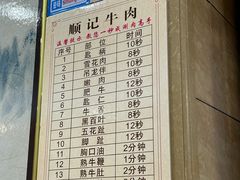 顺记牛肉
温馨提示 教您一秒成涮肉高手
序号 部位 时间
1 匙柄 8秒
2 雪花肉 10秒
3 吊龙伴 10秒
4 嫩肉 8秒
5 肥牛 12秒
6 匙仁 8秒
7 牛舌 10秒
8 黑百叶 12秒
9 五花趾 12秒
10 脚趾 12秒
11 胸口油 2分钟
12 熟牛鞭 1分钟
13 熟牛肚 2分钟